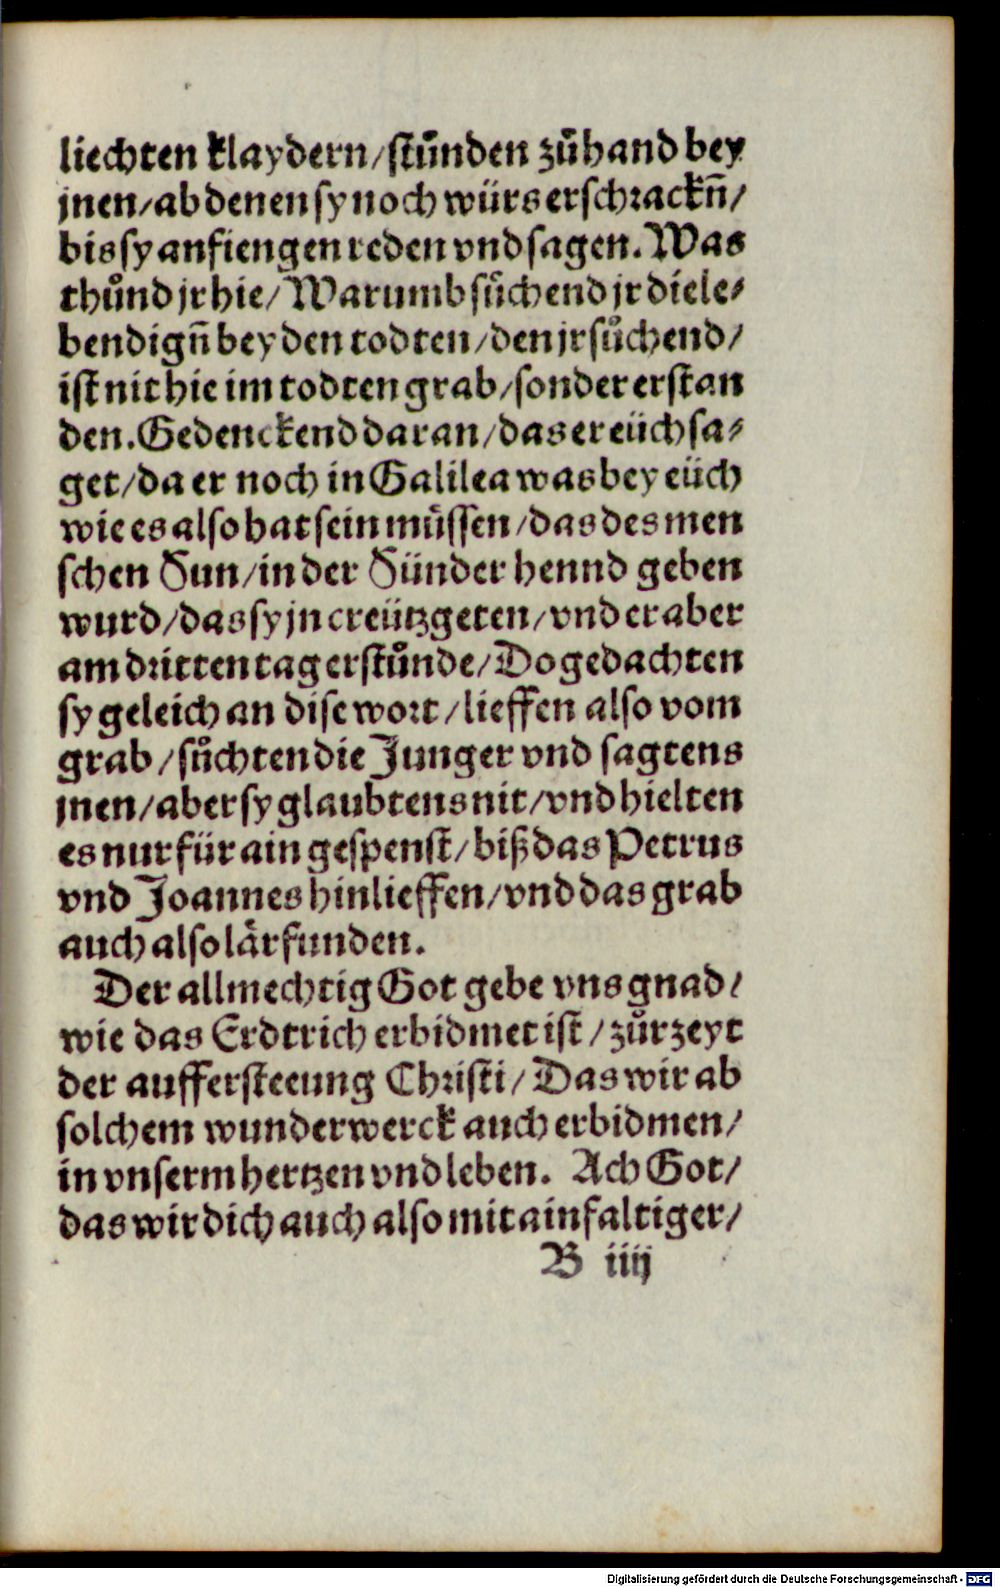 liechten klaydern/stůnden zůhand bey
jnen/ab denen sy noch würs erschrackñ/
bis sy anfiengen reden vnd sagen. Was
thůnd jr hie/Warumb sůchend jr die le⸗
bendigñ bey den todten/den jr sůchend/
ist nit hie im todten grab/sonder erstan
den. Gedenckend daran/das er eüch sa⸗
get/da er noch in Galilea was bey eüch
wie es also hat sein müssen/das des men
schen Sun/in der Sünder hennd geben
wurd/das sy jn creützgeten/vnd er aber
am dritten tag erstůnde/Do gedachten
sy geleich an dise wort/lieffen also vom
grab/sůchten die Junger vnd sagtens
jnen/aber sy glaubtens nit/vnd hielten
es nur für ain gespenst/biß das Petrus
vnd Joannes hinlieffen/vnd das grab
auch also lär funden.
Der allmechtig Got gebe vns gnad/
wie das Erdtrich erbidmet ist/zůr zeyt
der auffersteeung Christi/Das wir ab
solchem wunderwerck auch erbidmen/
in vnserm hertzen vnd leben. Ach Got/
das wir dich auch also mit ainfaltiger/
B iiij
Digitalisierung gefördert durch die Deutsche Forschungsgemeinschaft - DFG